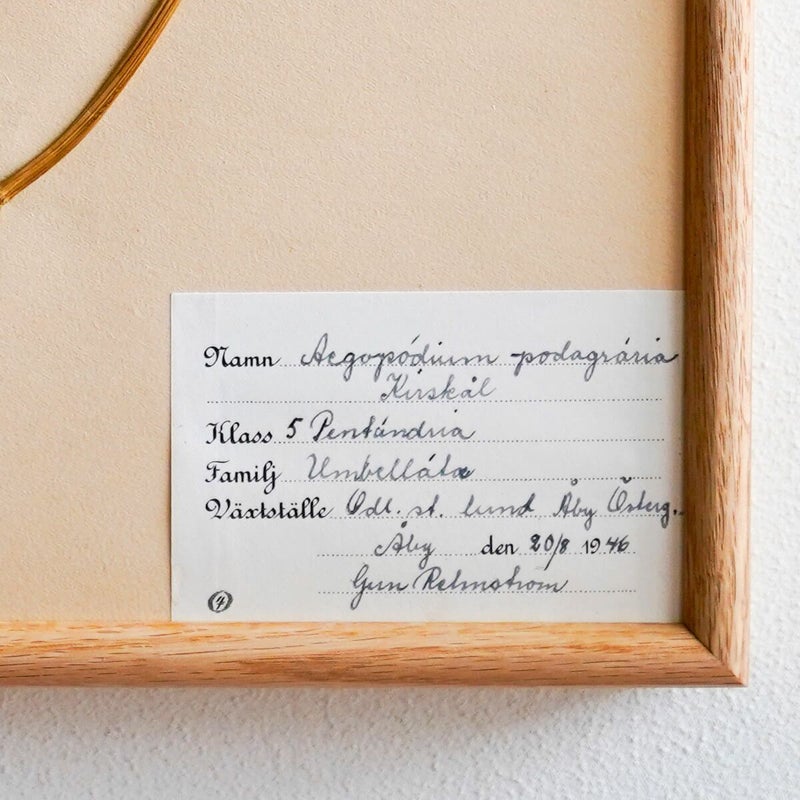 Namn Aegopódium podagrária
Kirskål
Klass 5 Pentándria
Familj Umbellátæ
Växtställe Odl. st. lund, Åby Österg.
Åby den 20/8 1946
Gun
4